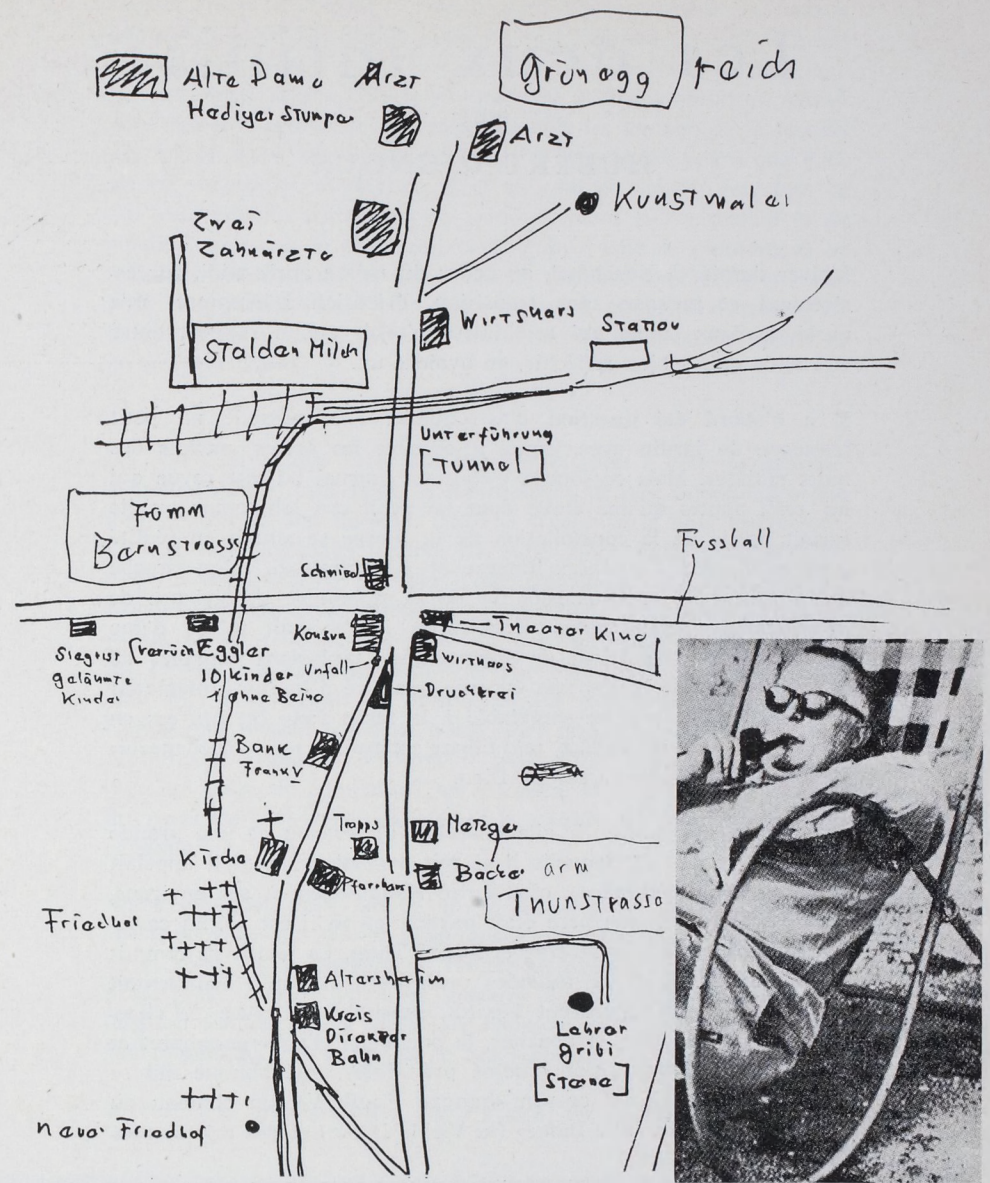 Alte Dame Arzt
Hediger Stumpe
Grünegg
reich
Arzt
Kunstmaler
Zwei
Zahnärzte
Wirtshaus
Station
Stalden Milch
Unterführung
[Tunnel]
Fromm
Bernstrasse
Fussball
Schmied
Konsum
Theater Kino
Siegrist
gelähmte
Kinder
Eggler
10 Kinder
1 ohne Beine
Unfall
Wirthaus
Druckerei
Bank
Franky
Trapps
Metzger
Kirche
Pfarrhaus
Bäcker
arm
Thunstrasse
Friedhof
Altersheim
Kreis
Direktor
Bahn
Lehrer
gribi
[Sterne]
neuer Friedhof